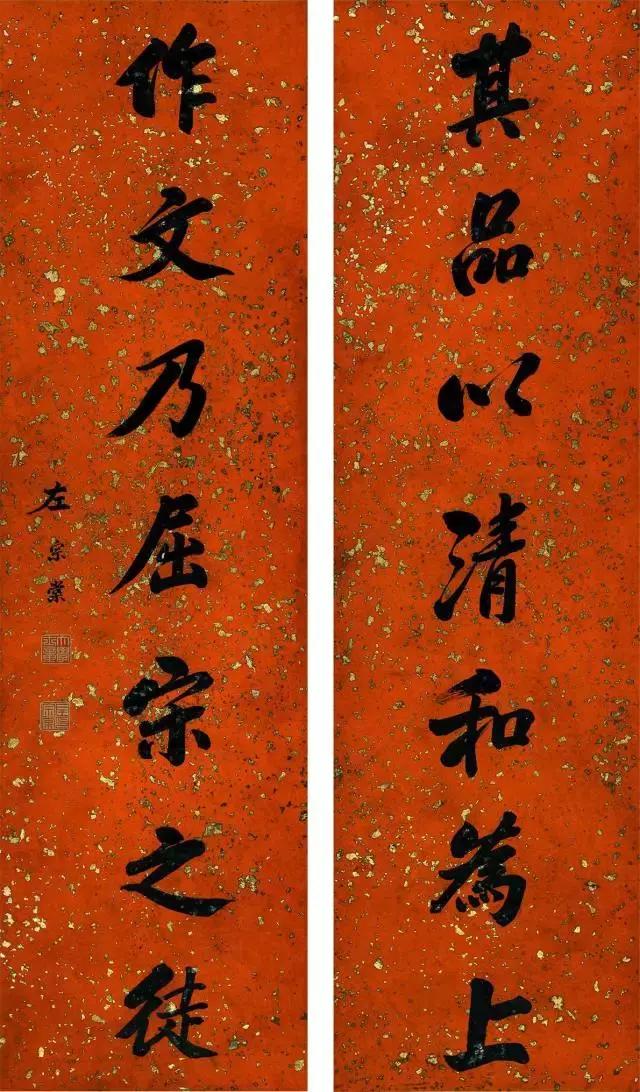 其品以清和為上
作文乃屈宋之徒
左宗棠